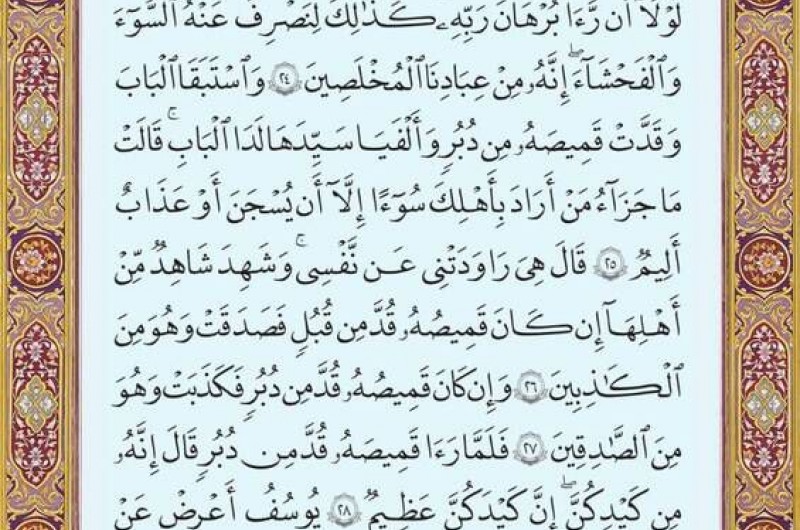 لَوْلَآ أَن رَّءَا بُرْهَٰنَ رَبِّهِۦ ۚ كَذَٰلِكَ لِنَصْرِفَ عَنْهُ ٱلسُّوٓءَ
وَٱلْفَحْشَآءَ ۚ إِنَّهُۥ مِنْ عِبَادِنَا ٱلْمُخْلَصِينَ ٢٤ وَٱسْتَبَقَا ٱلْبَابَ
وَقَدَّتْ قَمِيصَهُۥ مِن دُبُرٍ وَأَلْفَيَا سَيِّدَهَا لَدَا ٱلْبَابِ ۚ قَالَتْ
مَا جَزَآءُ مَنْ أَرَادَ بِأَهْلِكَ سُوٓءًا إِلَّآ أَن يُسْجَنَ أَوْ عَذَابٌ
أَلِيمٌ ٢٥ قَالَ هِىَ رَٰوَدَتْنِى عَن نَّفْسِى ۚ وَشَهِدَ شَاهِدٌ مِّنْ
أَهْلِهَآ إِن كَانَ قَمِيصُهُۥ قُدَّ مِن قُبُلٍ فَصَدَقَتْ وَهُوَ مِنَ
ٱلْكَٰذِبِينَ ٢٦ وَإِن كَانَ قَمِيصُهُۥ قُدَّ مِن دُبُرٍ فَكَذَبَتْ وَهُوَ
مِنَ ٱلصَّٰدِقِينَ ٢٧ فَلَمَّا رَءَا قَمِيصَهُۥ قُدَّ مِن دُبُرٍ قَالَ إِنَّهُۥ
مِن كَيْدِكُنَّ ۖ إِنَّ كَيْدَكُنَّ عَظِيمٌ ٢٨ يُوسُفُ أَعْرِضْ عَنْ